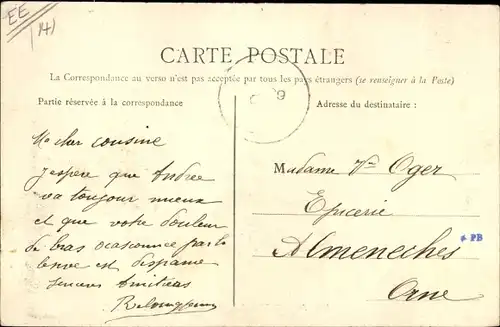 EE
(14)
CARTE POSTALE
La Correspondance au verso n'est pas acceptée par tous les pays étrangers (se renseigner à la Poste)
Partie réservée à la correspondance
Adresse du destinataire :
09
Ma cher cousine
J'espère que Andree
va toujour mieux
et que votre douleur
de bras ocasionnee par le
est disparue
sinceres Amitiees
Madame Vve Oger
Epicerie
Almeneches
* PB
Orne